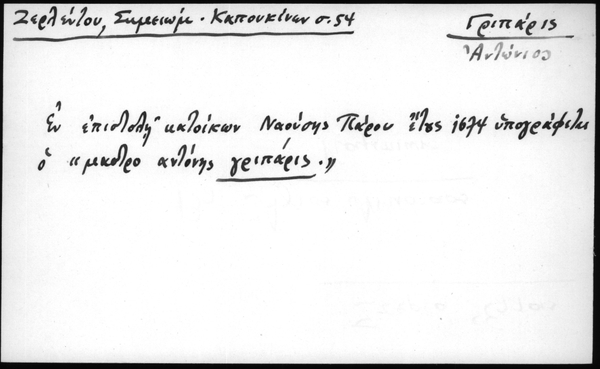 Ζερλέντου, Σημειώμ. Καπουκίνων σ. 54
Γριπάρις
Ἀντώνιος
Ἐν ἐπιστολῇ κατοίκων Ναούσης Πάρου ἔτους 1674 ὑπογράφεται
ὁ "μαστρο αντόνης γριπάρις."